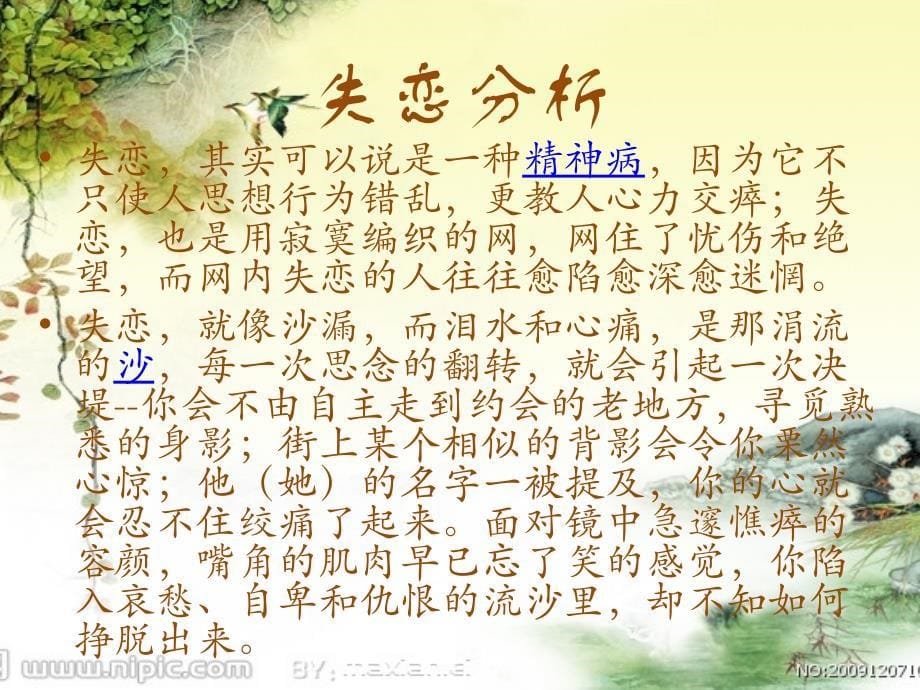 失恋分析
• 失恋，其实可以说是一种精神病，因为它不
只使人思想行为错乱，更教人心力交瘁；失
恋，也是用寂寞编织的网，网住了忧伤和绝
望，而网内失恋的人往往愈陷愈深愈迷惘。
• 失恋，就像沙漏，而泪水和心痛，是那涓流
的沙，每一次思念的翻转，就会引起一次决
堤--你会不由自主走到约会的老地方，寻觅熟
悉的身影；街上某个相似的背影会令你栗然
心惊；他（她）的名字一被提及，你的心就
会忍不住绞痛了起来。面对镜中急邃憔瘁的
容颜，嘴角的肌肉早已忘了笑的感觉，你陷
入哀愁、自卑和仇恨的流沙里，却不知如何
挣脱出来。
网 www.nipic.com BY: maxian.di NO:2009120710